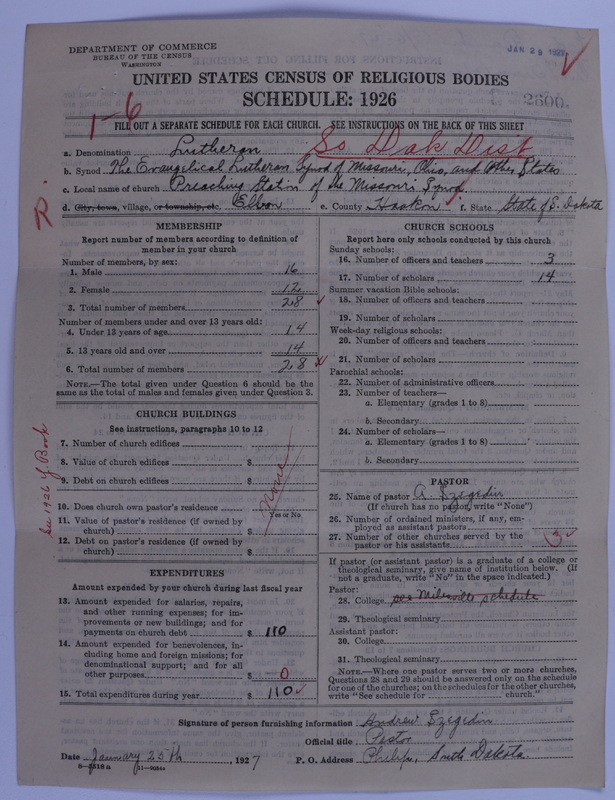 DEPARTMENT OF COMMERCE
BUREAU OF THE CENSUS
WASHINGTON
JAN 29 1927
UNITED STATES CENSUS OF RELIGIOUS BODIES
SCHEDULE: 1926
2600
1-6
FILL OUT A SEPARATE SCHEDULE FOR EACH CHURCH. SEE INSTRUCTIONS ON THE BACK OF THIS SHEET
So Dak Dist
a. Denomination Lutheran
b. Synod The Evangelical Lutheran Synod of Missouri, Ohio, and Other States
c. Local name of church Preaching Stat'n of the Missouri Synod.
d. City, town, village, or township, etc. Elbon e. County Haakon f. State State of S. Dakota
R.
MEMBERSHIP
Report number of members according to definition of
member in your church
Number of members, by sex:
1. Male 16
2. Female 12
3. Total number of members 28
Number of members under and over 13 years old:
4. Under 13 years of age 14
5. 13 years old and over 14
6. Total number of members 28
NOTE.—The total given under Question 6 should be the
same as the total of males and females given under Question 3.
CHURCH BUILDINGS
See instructions, paragraphs 10 to 12
7. Number of church edifices
8. Value of church edifices $
9. Debt on church edifices $
None
10. Does church own pastor's residence
Yes or No
11. Value of pastor's residence (if owned by
church) $
12. Debt on pastor's residence (if owned by
church) $
See 1926 Y. Book
EXPENDITURES
Amount expended by your church during last fiscal year
13. Amount expended for salaries, repairs,
and other running expenses; for im-
provements or new buildings; and for
payments on church debt $ 110
14. Amount expended for benevolences, in-
cluding home and foreign missions; for
denominational support; and for all
other purposes $ 0
15. Total expenditures during year $ 110
CHURCH SCHOOLS
Report here only schools conducted by this church
Sunday schools:
16. Number of officers and teachers 3
17. Number of scholars 14
Summer vacation Bible schools:
18. Number of officers and teachers
19. Number of scholars
Week-day religious schools:
20. Number of officers and teachers
21. Number of scholars
Parochial schools:
22. Number of administrative officers
23. Number of teachers—
a. Elementary (grades 1 to 8)
b. Secondary
24. Number of scholars—
a. Elementary (grades 1 to 8)
b. Secondary
PASTOR
25. Name of pastor A. Szegedin
(If church has no pastor, write "None")
26. Number of ordained ministers, if any, em-
ployed as assistant pastors
27. Number of other churches served by the
pastor or his assistants 3
If pastor (or assistant pastor) is a graduate of a college or
theological seminary, give name of institution below. (If
not a graduate, write "No" in the space indicated.)
Pastor:
28. College see schedule
29. Theological seminary
Assistant pastor:
30. College
31. Theological seminary
NOTE.—Where one pastor serves two or more churches,
Questions 28 and 29 should be answered only on the schedule
for one of the churches; on the schedules for the other churches,
write "See schedule for church."
Signature of person furnishing information Andrew Szegedin
Official title Pastor
Date January 25th, 1927 P. O. Address Philip, South Dakota
8-5518 a 11-9254